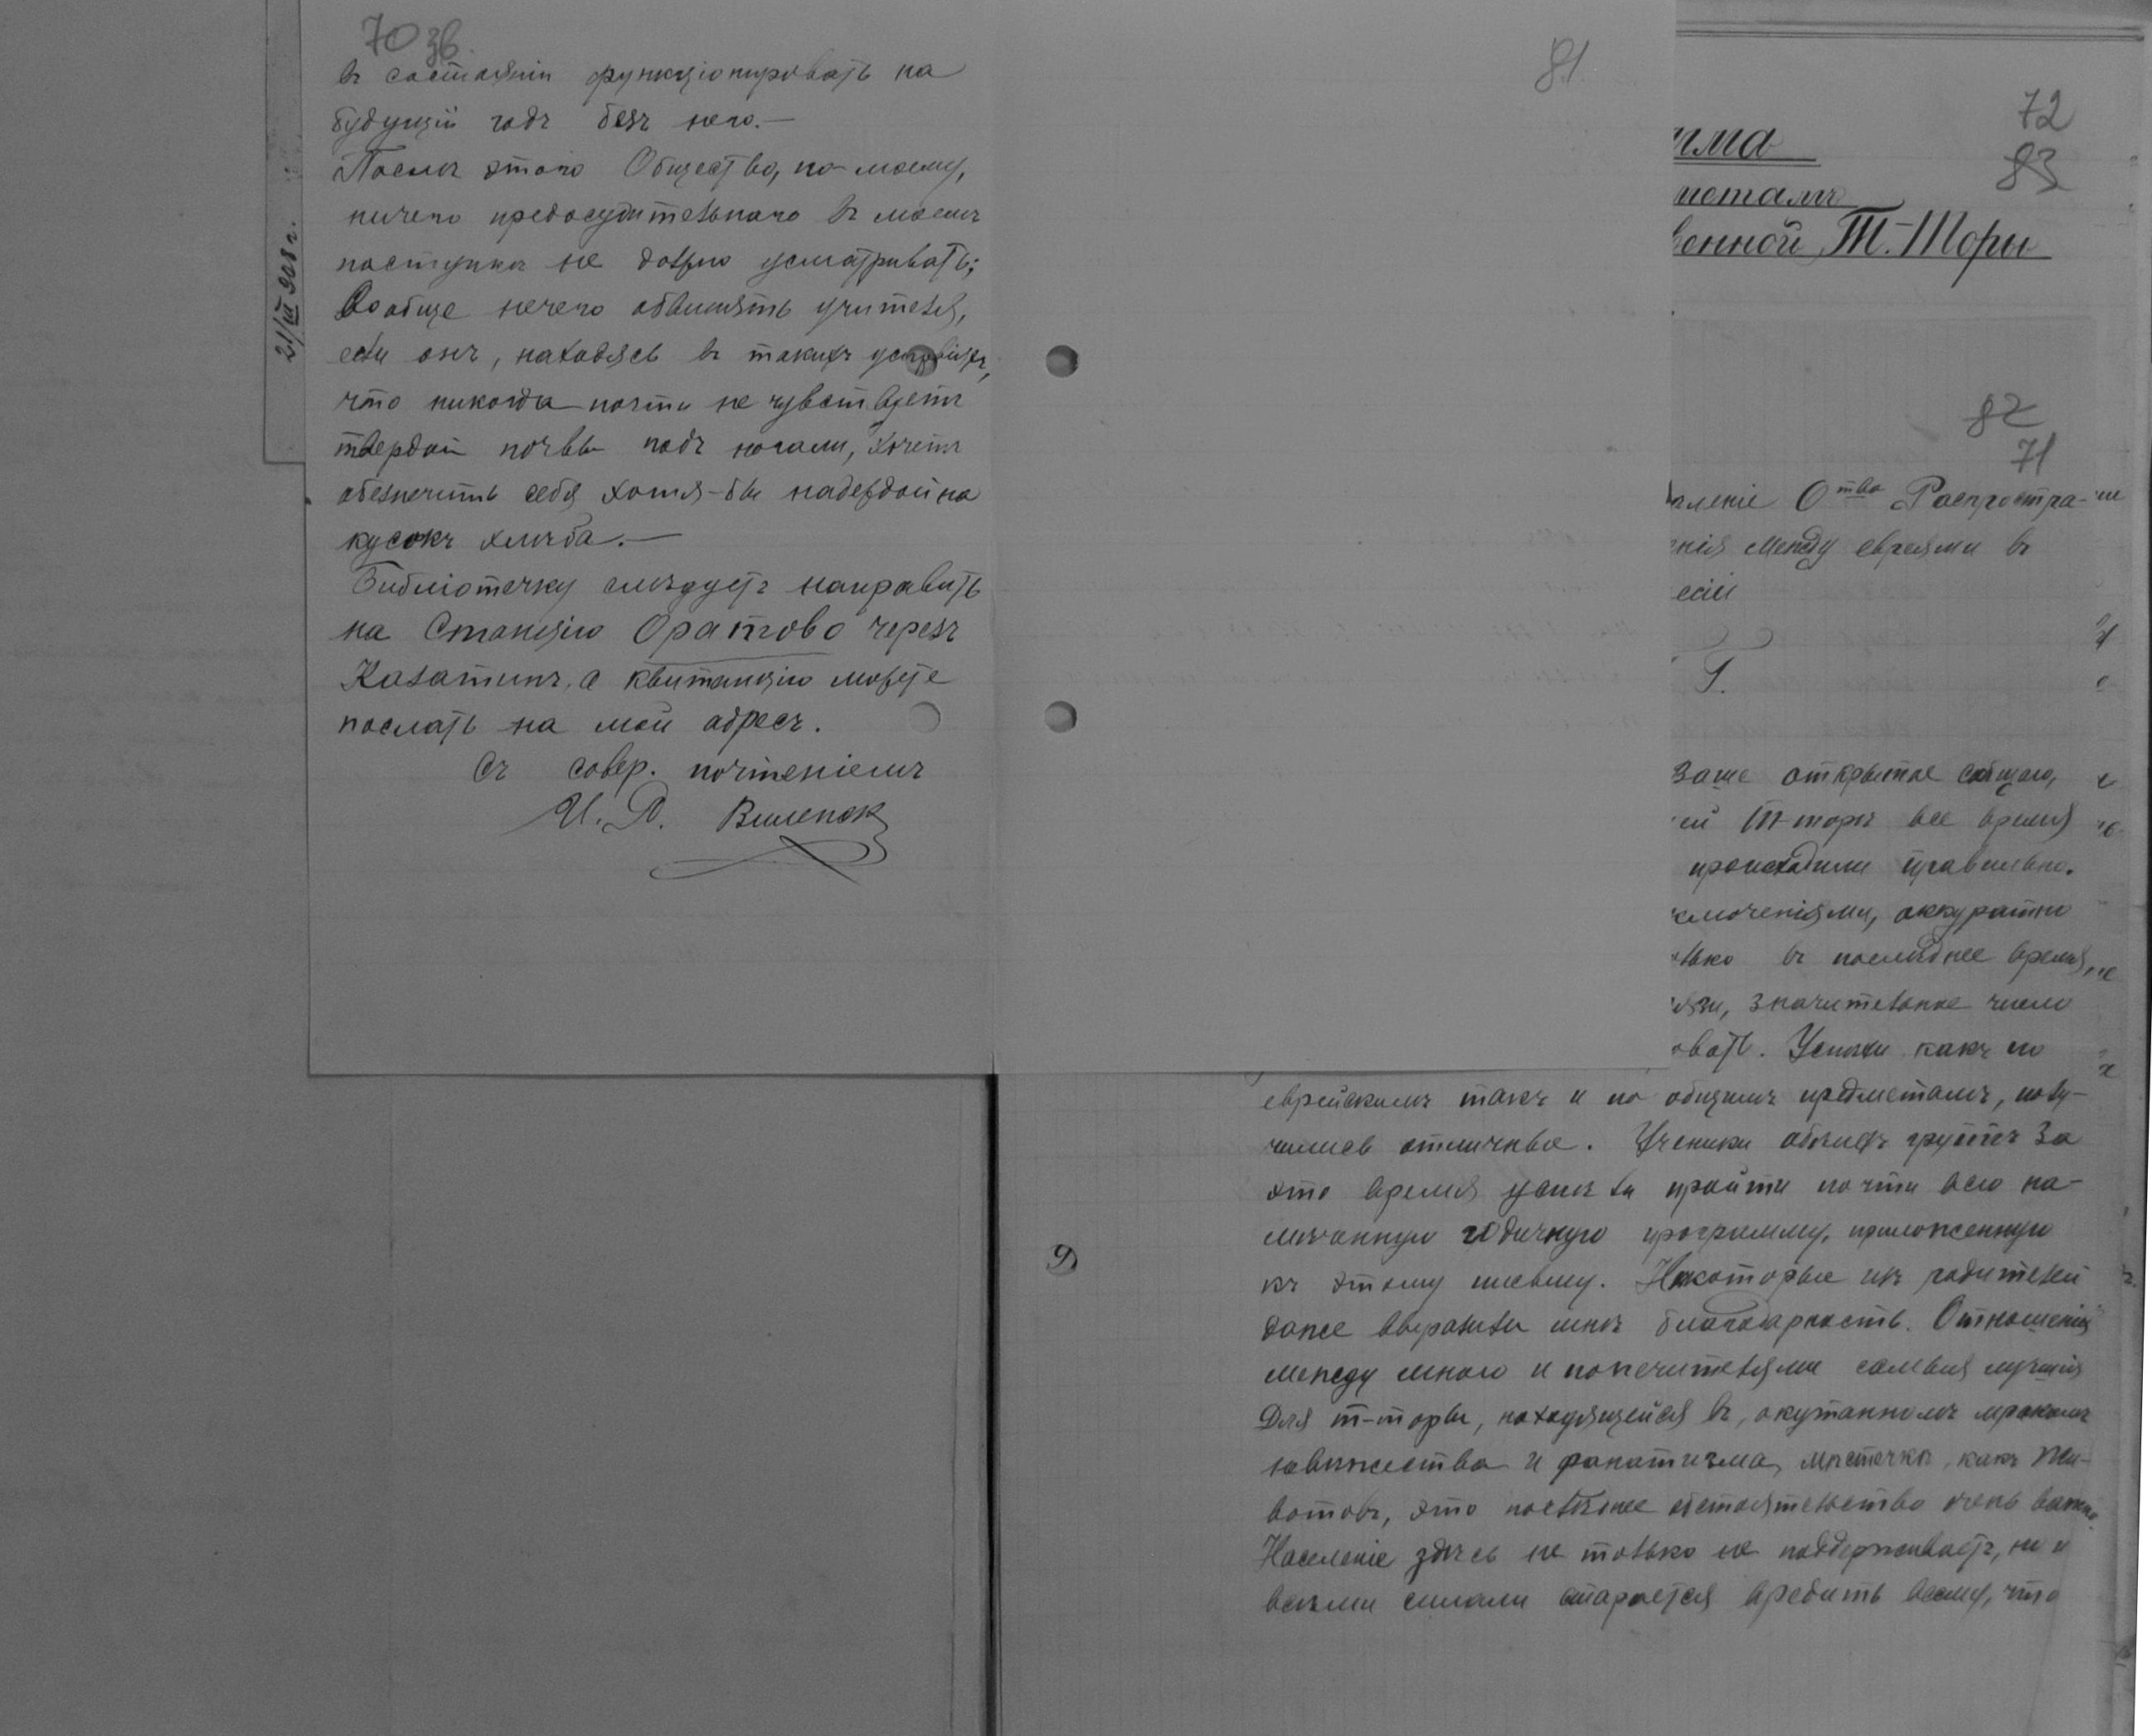 70 зв.
въ состояніи функціонировать на
будущій годъ безъ него.—
Послѣ этого Общество, по-моему,
ничего предосудительнаго въ моемъ
поступкѣ не должно усматривать;
Вообще нечего обвинять учителя,
если онъ, находясь въ такихъ условіяхъ,
что никогда почти не чувствуетъ
твердой почвы подъ ногами, хочетъ
обезпечить себя хотя-бы надеждой на
кусокъ хлѣба.—
Библіотечку слѣдуетъ направить
на Станцію Оратово черезъ
Казатинъ, а квитанцію можете
послать на мой адресъ.
Съ совер. почтеніемъ
И. Д. Виленск
21/III 908 г.
81
72
83
мма
метамъ
венной Т.-Торы
82
71
вленіе О-тва Распростра-
енія между евреями въ
ссіи
Г.
Ваше открытое сообщаю,
ей Т-торѣ все время
происходили правильно.
ключеніями, аккуратно
лько въ послѣднее время,
язи, значительное число
овать. Успѣхи какъ по
еврейскимъ такъ и по общимъ предметамъ, полу-
чились отличные. Ученики обѣихъ группъ за
это время успѣли пройти почти всю на-
мѣченную годичную программу, приложенную
къ этому письму. Нѣкоторые изъ родителей
даже выразили мнѣ благодарность. Отношенія
между мною и попечителями самыя лучшія
Для т-торы, находящейся въ, окутанномъ мракомъ
невѣжества и фанатизма, мѣстечкѣ, какъ Жи-
вотовъ, это послѣднее обстоятельство очень важно.
Населеніе здѣсь не только не поддерживаетъ, но и
всѣми силами старается вредить всему, что